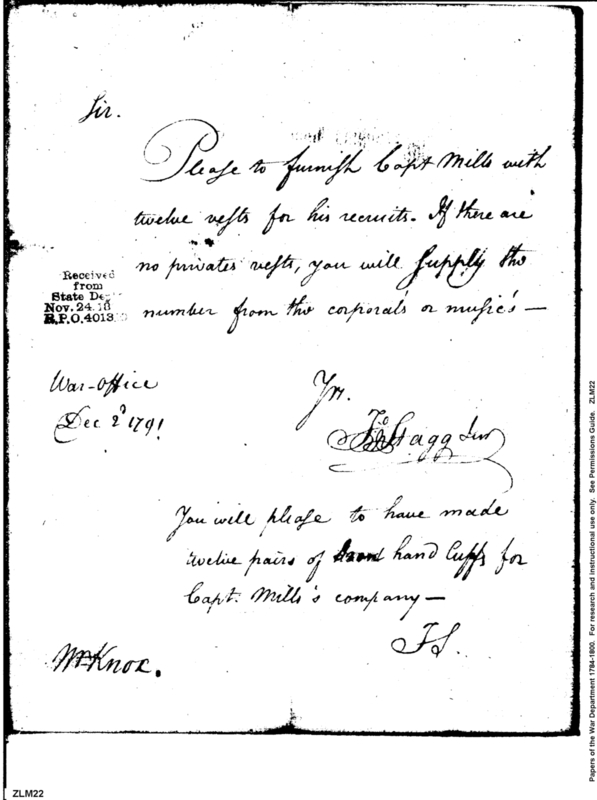 Sir.
Please to furnish Capt Mills with
twelve vests for his recruits. If there are
no privates vests, you will supply the
number from the corporals or music's —
Received
from
State De
Nov. 24. 18
R.P.O. 4013
War-Office
Dec 2d 1791
Yr.
Jno Stagg Junr
You will please to have made
twelve pairs of hand Cuffs for
Capt. Mills's company —
J S.
Mr Knox.
Papers of the War Department 1784-1800. For research and instructional use only. See Permissions Guide. ZLM22
ZLM22